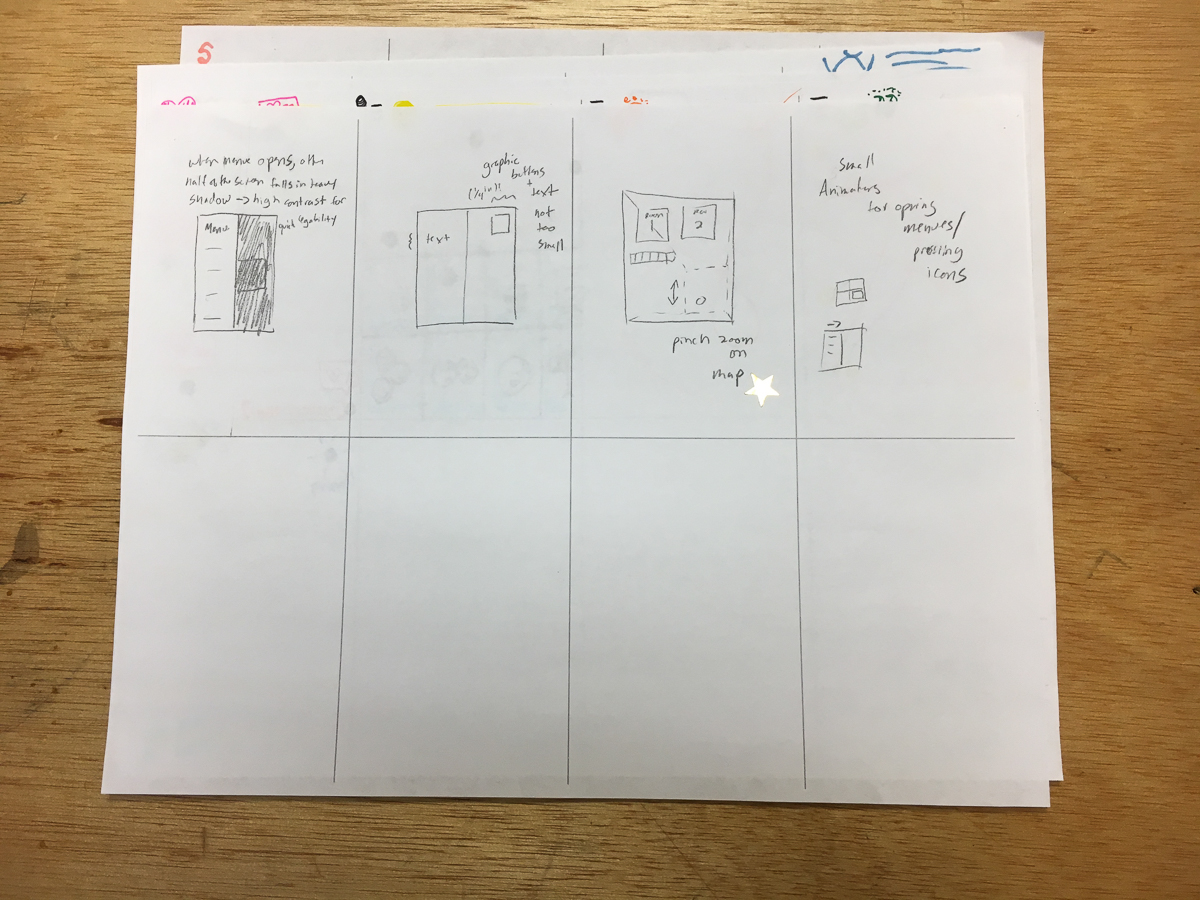 S
when menue opens, other
half of the screen falls in heavy
shadow → high contrast for
quick legability
Menue
graphic
buttons
+ text
(1/4 in)!!
not
too
small
text
Room
1
2
pinch zoom
on
map
small
Animations
for opning
menues/
pressing
icons